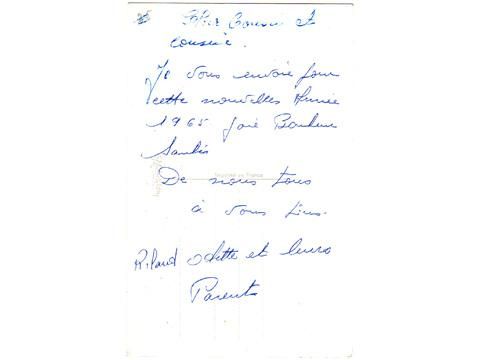 Cher Cousin et
cousine.
Je vous envoie pour
cette nouvelles Année
1965 Joie Bonheur
Santés
Imprimé en France
De nous tous
à vous tous.
Roland Odette et leurs
Parents